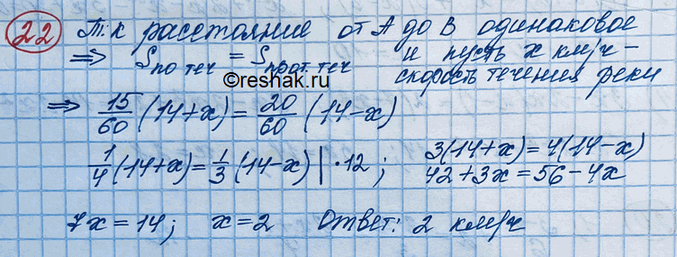 22 Т.к расстояние от А до В одинаковое
⇒ S по теч = S прот теч и пусть x км/ч -
скорость течения реки
©reshak.ru
⇒ 15/60 (14+x) = 20/60 (14-x)
1/4 (14+x) = 1/3 (14-x) | · 12 ; 3(14+x) = 4(14-x)
42+3x = 56-4x
7x = 14 ; x = 2 Ответ: 2 км/ч